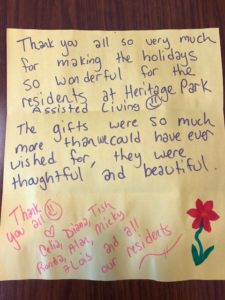 Thank you all so very much
for making the holidays
so wonderful for the
residents at Heritage Park
Assisted Living
The gifts were so much
more than we could have ever
wished for, they were
thoughtful and beautiful.
Thank
you all
Celia, Diana, Tish,
Ronda, Alan, Micky
& Lois and all
our residents